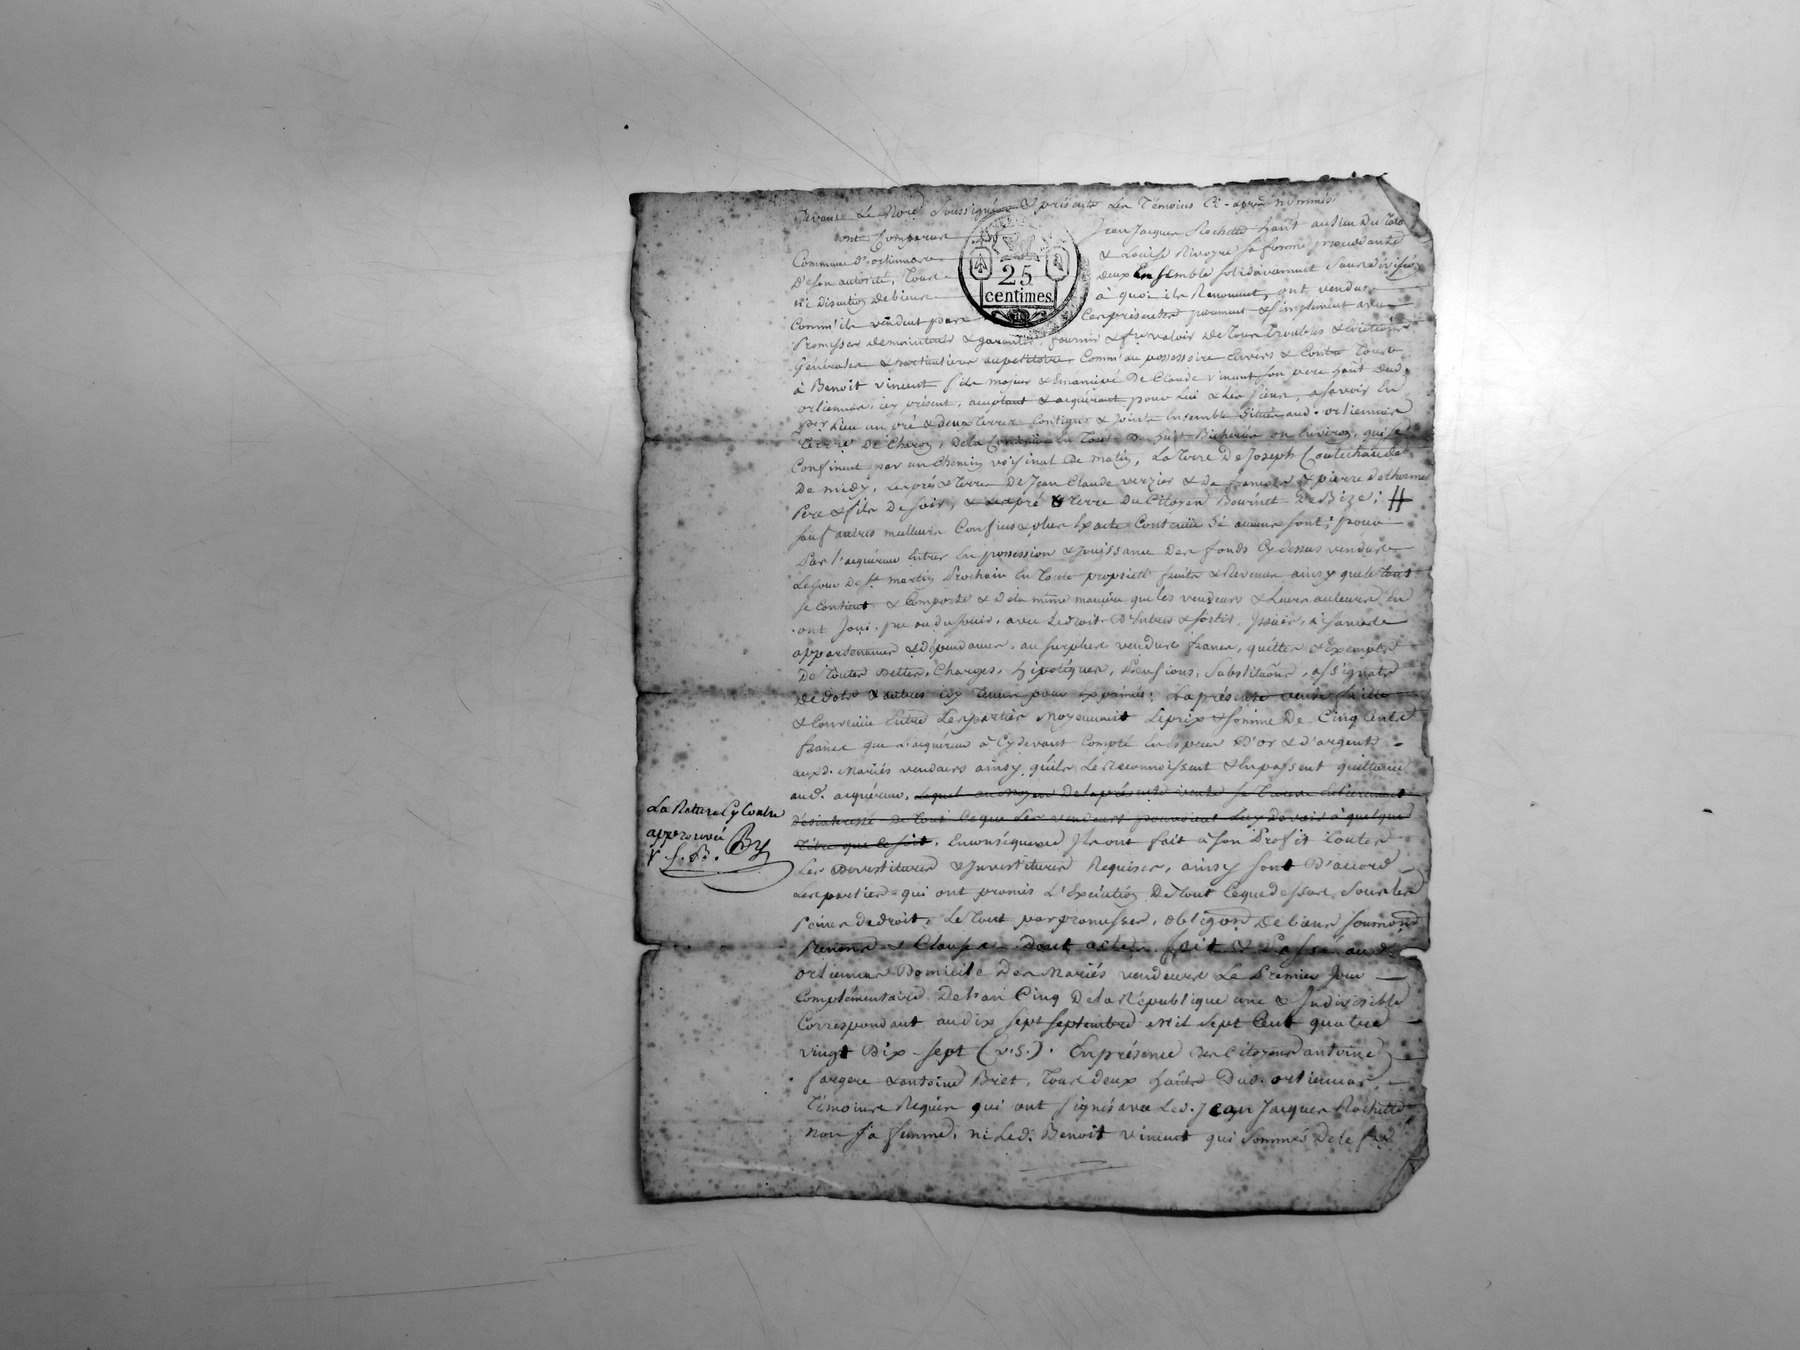 Devant Le No.re Soussigné & présents les Témoins Ci-après nommés
ont Comparus Jean Jacques Rochette hant au lieu Du
Commune D'ortiennas & Louise Rivoyre sa femme procédante
D'e son autorité, Tous deux Ensemble solidairement sans division
ni discution de biens à quoi ils Renoncent, ont vendus
Comm'ils vendent par Ces présentes purement & simplement avec
Promesses de maintenir & garantir, fournir & f.re valoir de tous Troubles & évictions
Générales & particulières au pétitoire Comm'au possessoire Envers & Contre Tous
à Benoit vincent fils majeur & émancipé De Claude vincent son père hant aud.
ortiennas, icy présent, acceptant & acquérant pour lui & les siens, asavoir En
p.er Lieu un pré & deux terres Contigus & joints Ensemble Situés aud. ortiennas
De la Contenüe En Tout De huit Bicherées ou Environ, qui se
Confinent par un Chemin voisinal De matin, La terre De Joseph Coutechaude
De midy, les pré & terre De Jean Claude verzier & De françois & pierre delhorme
Père & fils De soir, & les pré & terre Du Citoyen Bournet De Bize;
sauf autres meilleurs Confins & plus Exacte Contenüe Si aucuns sont; pour
Par l'acquéreur Entrer En possession & jouissance Des fonds Cy dessus vendus
Le jour De St martin Prochain En Toute propriété fruits & Revenus ainsy que le tout
se Contient & Comporte & De la même manière que les vendeurs & Leurs auteurs En
ont Joui, pu ou du jouir, avec Le droit D'Entrer & sortir, Issües, aisances
appartenances & Dépendances, au surplus vendus francs, quittes & Exempts
De toutes Dettes, Charges, hipotèques, Pensions, Substitutions, assignats
De dots & autres icy Tenus pour Exprimés; La présente vente faite
& Convenüe Entre Les parties Moyennant Le prix & somme De Cinq Cents
francs que L'acquéreur à Cy devant Compté En Espèces D'or & d'argent
auxd. Mariés vendeurs ainsy qu'ils Le Reconnoissent & En passent quittance
aud. acquéreur, Lequel au Moyen De la présente vente se Trouve Entièrement
Désintéressé de Tout Ce que Les vendeurs pouvoient Luy devoir à quelque
Titre que Ce soit. En conséquence Ils ont fait à son Profit Toutes
Les Devestitures & Investitures Requises, ainsy sont D'accord
Les parties qui ont promis L'Exécution De Tout Ce que dessus Sous les
Peines de droit, Le tout par promesses, oblig.on De biens soumon.
Renons & Clauses. dont acte. fait & Passé aud.
ortiennas Domicile Des Mariés vendeurs Le Premier Jour
Complémentaire De l'an Cinq De la République une & Indivisible
Correspondant au dix sept septembre Mil Sept Cent quatre
vingt Dix-sept (v.s.). En présence des Citoyens antoine
fargere & antoine Briet, Tous deux hants Dud. ortiennas
Témoins Requis qui ont signé avec Led. Jean Jacques Rochette
Non sa femme, ni Led. Benoit vincent qui Sommés De le f.re
25
centimes
La Rature Cy Contre
approuvée
V. S. B.